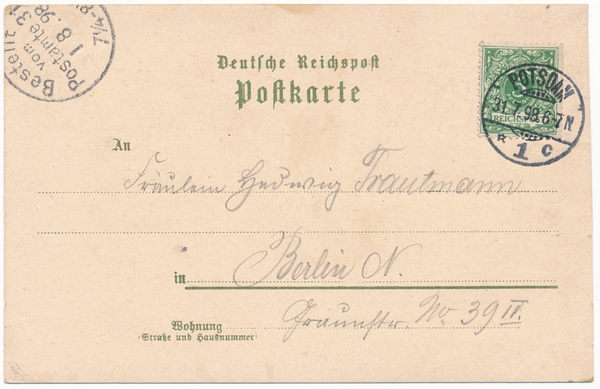 Bestellt
vom
Postamte 3
1 8. 98
7¼-8
Deutsche Reichspost
Postkarte
POTSDAM
31.7.98.6-7N.
1 c
REICHSP
An
Fräulein Hedwig Trautmann
in Berlin N.
Wohnung
(Straße und Hausnummer)
No 39 II.